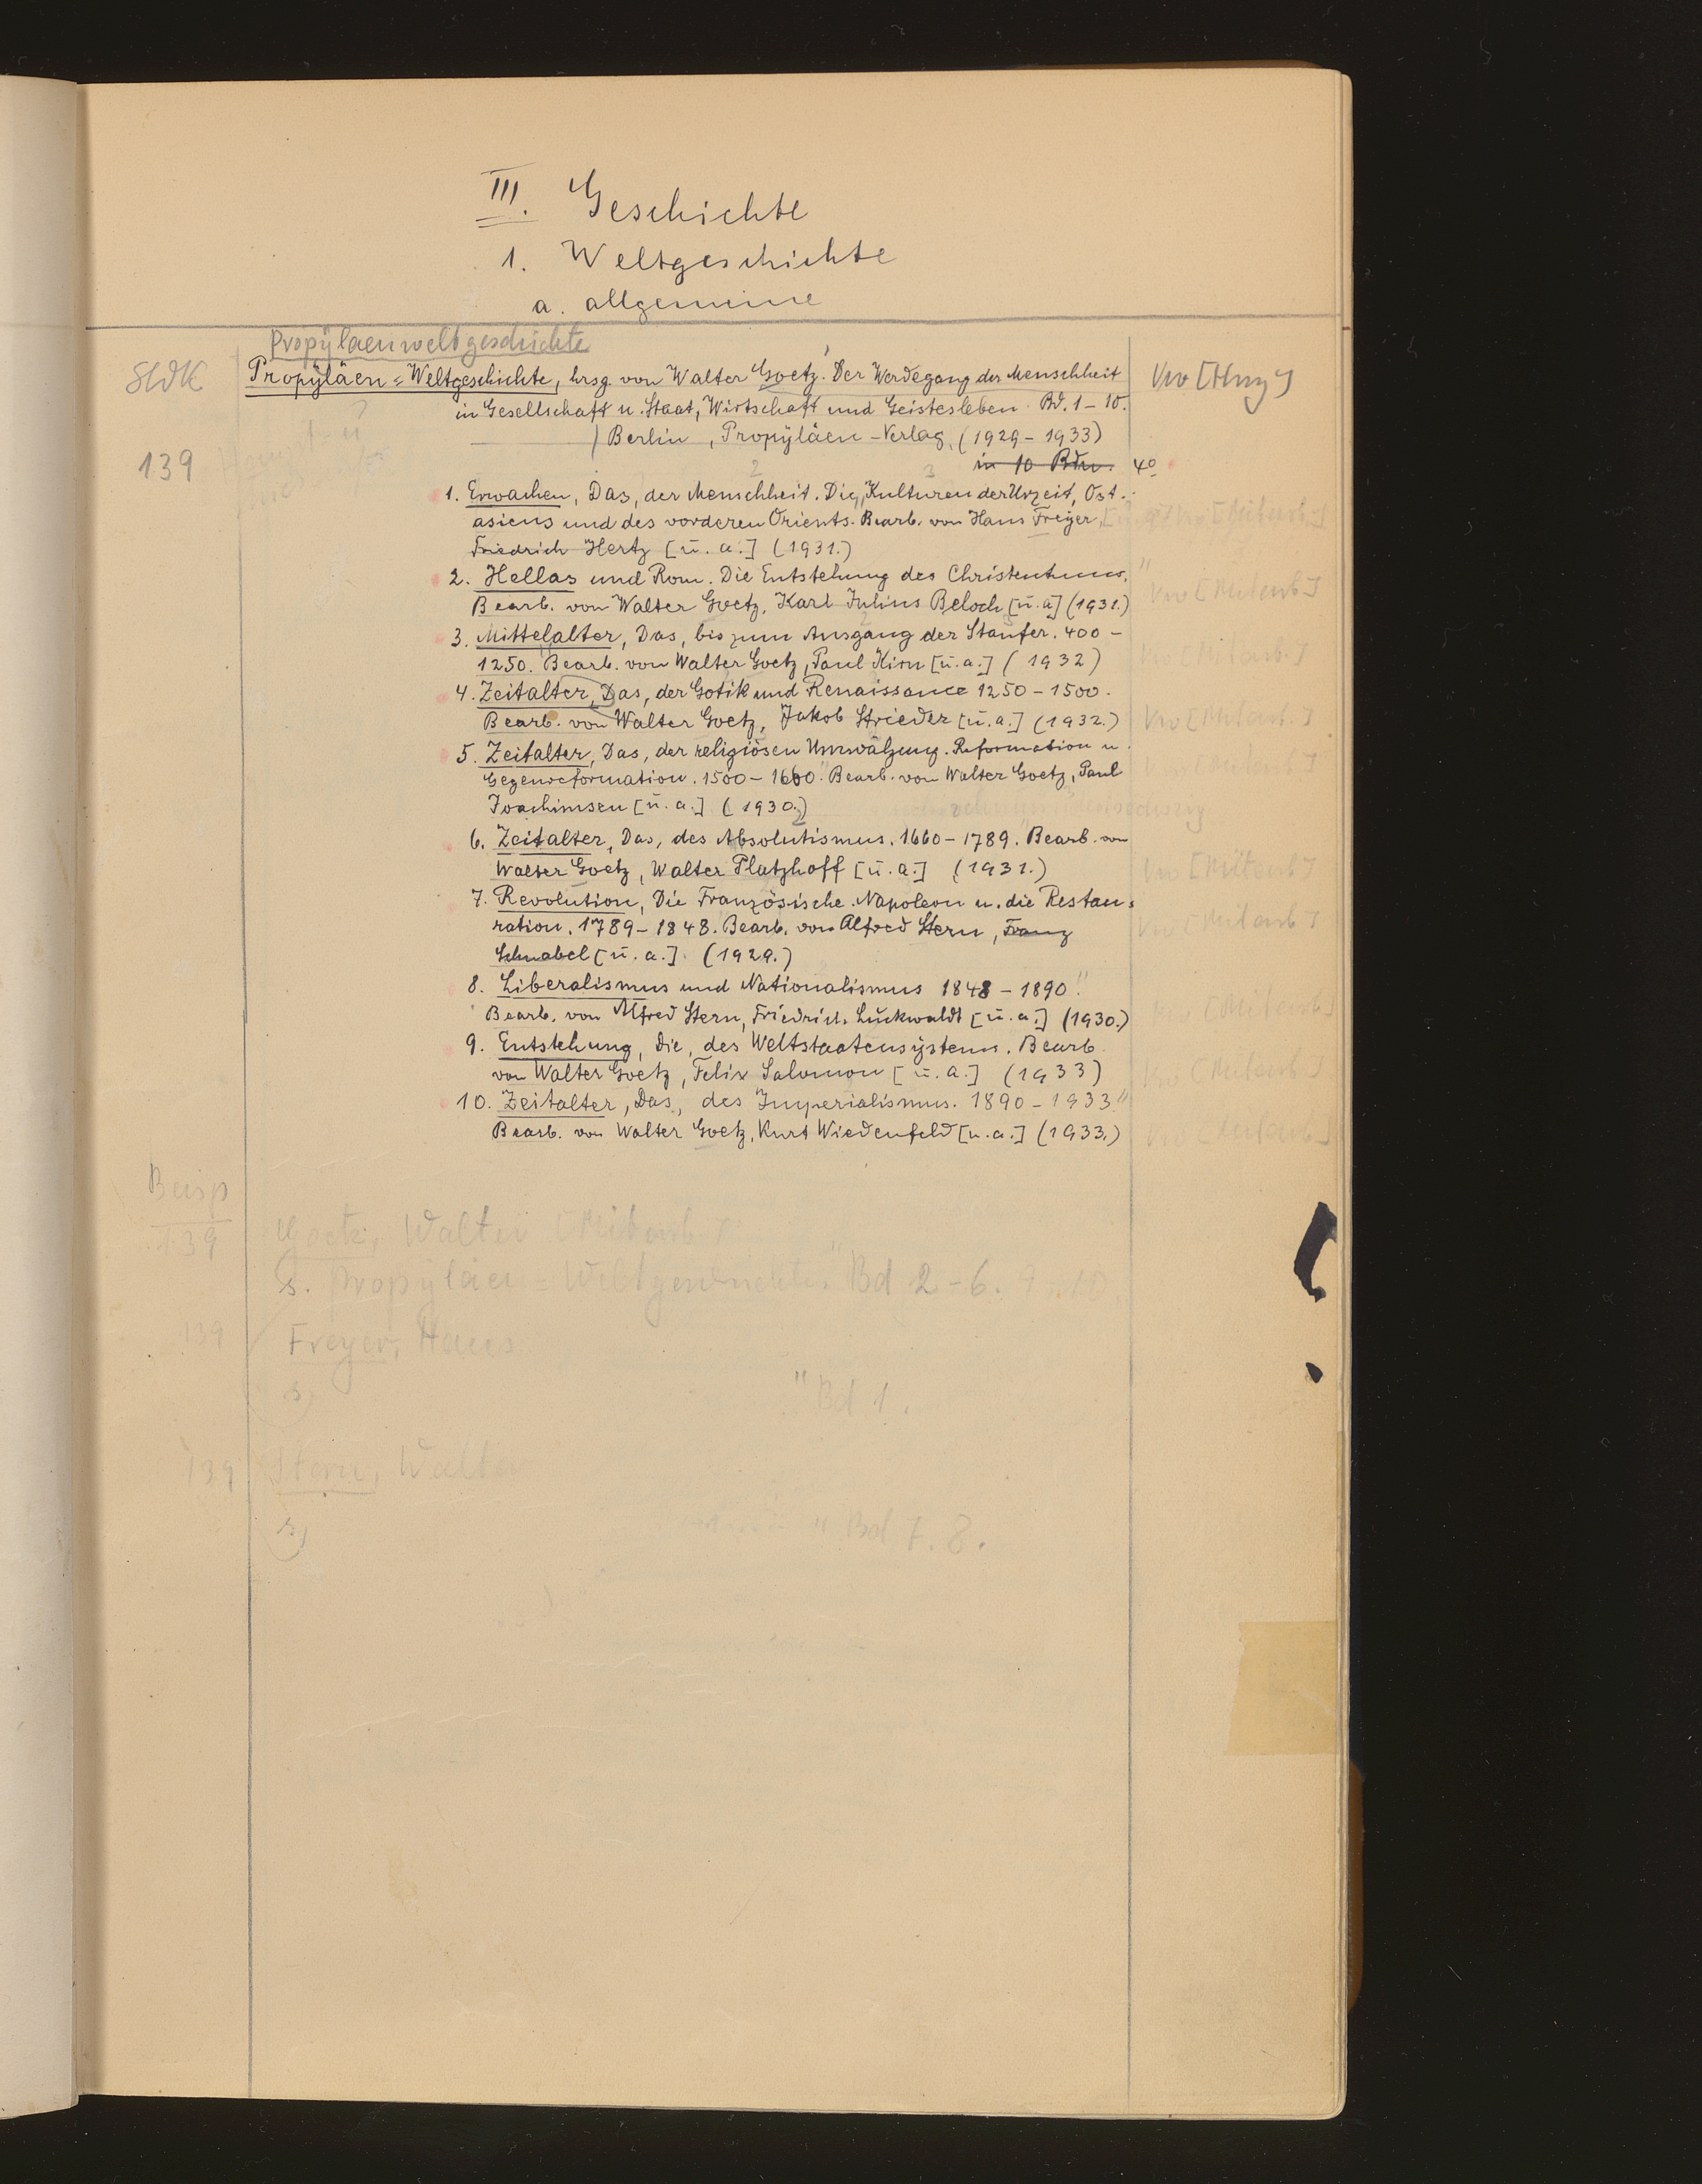 III. Geschichte
1. Weltgeschichte
a. allgemeine
Propyläenweltgeschichte
SWK Propyläen=Weltgeschichte, hrsg. von Walter Goetz. Der Werdegang der Menschheit
in Gesellschaft u. Staat, Wirtschaft und Geistesleben. Bd. 1–10.
Berlin, Propyläen-Verlag, (1929–1933)
139 in 10 Bdn. 4º
1. Erwachen, Das, der Menschheit. Die Kulturen der Urzeit, Ost-
asiens und des vorderen Orients. Bearb. von Hans Freyer,
Friedrich Hertz [u. a.] (1931.)
2. Hellas und Rom. Die Entstehung des Christentums."
Bearb. von Walter Goetz, Karl Julius Beloch [u. a] (1931.) [Mitarb]
3. Mittelalter, Das, bis zum Ausgang der Staufer. 400 –
1250. Bearb. von Walter Goetz, Paul Kirn [u. a.] (1932) [Mitarb.]
4. Zeitalter, Das, der Gotik und Renaissance 1250–1500.
Bearb. von Walter Goetz, Jakob Strieder [u. a.] (1932.) [Mitarb.]
5. Zeitalter, Das, der religiösen Umwälzung. Reformation u.
Gegenreformation. 1500–1660." Bearb. von Walter Goetz, Paul
Joachimsen [u. a.] (1930.)
6. Zeitalter, Das, des Absolutismus. 1660–1789." Bearb. von
Walter Goetz, Walter Platzhoff [u. a.] (1931.) [Mitarb]
7. Revolution, Die Französische. Napoleon u. die Restau=
ration. 1789–1848. Bearb. von Alfred Stern, Franz
Schnabel [u. a.]. (1929.)
8. Liberalismus und Nationalismus 1848–1890."
Bearb. von Alfred Stern, Friedrich Luckwaldt [u. a.] (1930.) [Mitarb]
9. Entstehung, Die, des Weltstaatensystems. Bearb.
von Walter Goetz, Felix Salomon [u. a.] (1933) [Mitarb]
10. Zeitalter, Das, des Imperialismus. 1890–1933."
Bearb. von Walter Goetz, Kurt Wiedenfeld [u. a.] (1933.)
139 Goetz, Walter [Mitarb.]
s. Propyläen=Weltgeschichte." Bd 2–6. 9. 10.
139 Freyer, Hans
s) " Bd 1.
139 Stern, Walter
s) " Bd 7. 8.